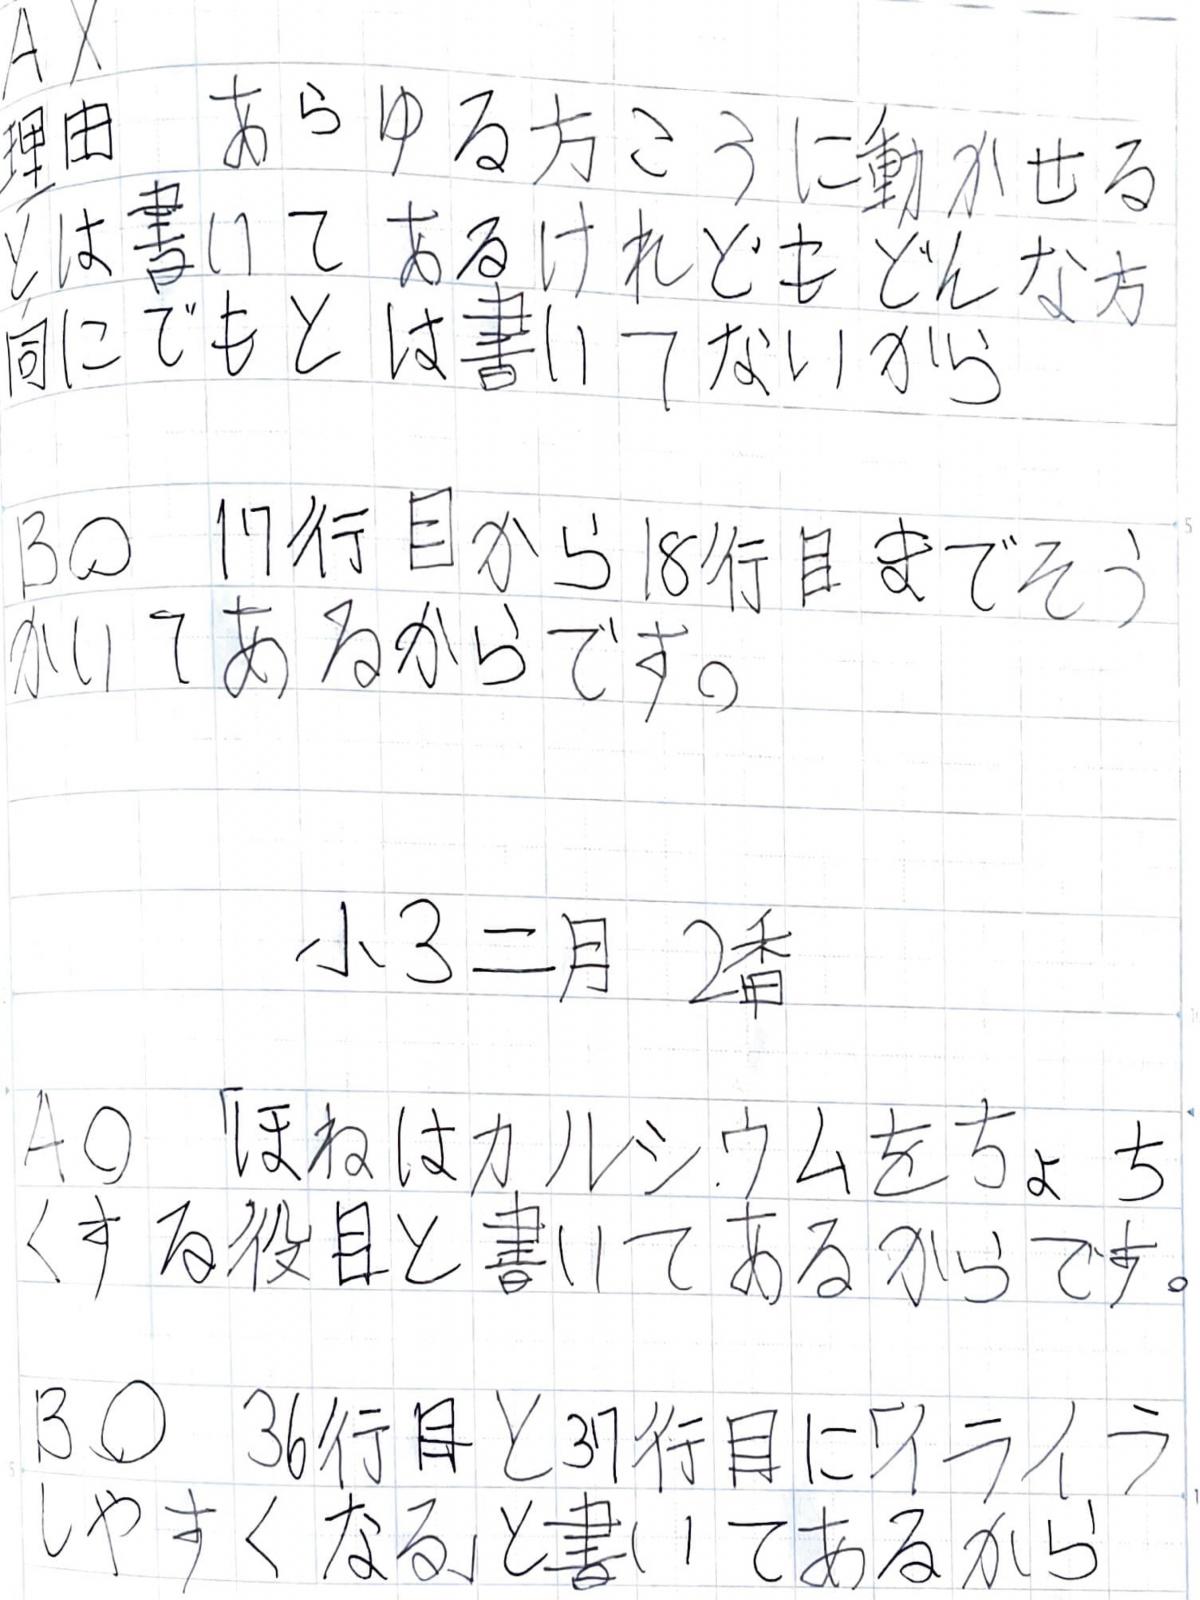 A X
理由 あらゆる方こうに動かせる
とは書いてあるけれどもどんな方
向にでもとは書いてないから
B○ 17行目から18行目までそう
かいてあるからです。
小3二月 2番
A○ 「ほねはカルシウムをちょち
くする役目と書いてあるからです。
B○ 36行目と37行目に「イライラ
しやすくなる」と書いてあるから